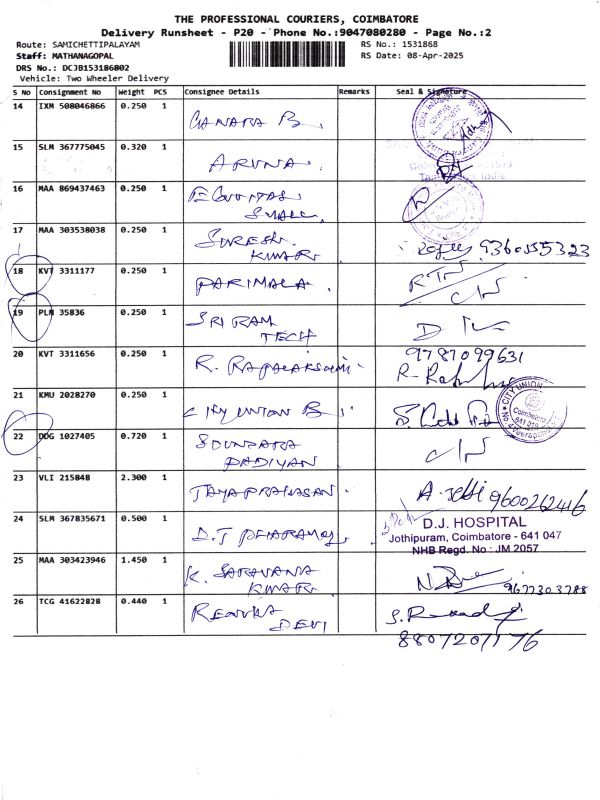 THE PROFESSIONAL COURIERS, COIMBATORE
Delivery Runsheet - P20 - Phone No.:9047080280 - Page No.:2
Route: SAMICHETTIPALAYAM
RS No.: 1531868
Staff: MATHANAGOPAL
RS Date: 08-Apr-2025
DRS No.: DCJB153186802
Vehicle: Two Wheeler Delivery
S No Consignment No Weight PCS Consignee Details Remarks Seal & Signature
14 IXM 508046866 0.250 1 CANARA B.
15 SLM 367775045 0.320 1 ARUNA.
16 MAA 869437463 0.250 1 EQUITAS
SMALL
17 MAA 303538038 0.250 1 SURESH 9360155323
KUMAR
18 KVT 3311177 0.250 1 PARIMALA. RTN
19 PLN 35836 0.250 1 SRI RAM D
TECH
20 KVT 3311656 0.250 1 R. RAJALAKSHMI 9787099631
21 KMU 2028270 0.250 1 CITY UNION B. CITY UNION
Coimbatore
22 DDG 1027405 0.720 1 SOUNDARA
PADIYAN
23 VLI 215848 2.300 1 JAYAPRAKASAN. 9600262416
24 SLM 367835671 0.500 1 D.J D.J. HOSPITAL
Jothipuram, Coimbatore - 641 047
NHB Regd. No : JM 2057
25 MAA 303423946 1.450 1 K. SARAVANA
KUMAR 9677303788
26 TCG 41622828 0.440 1 RENUKA
DEVI
8807207176